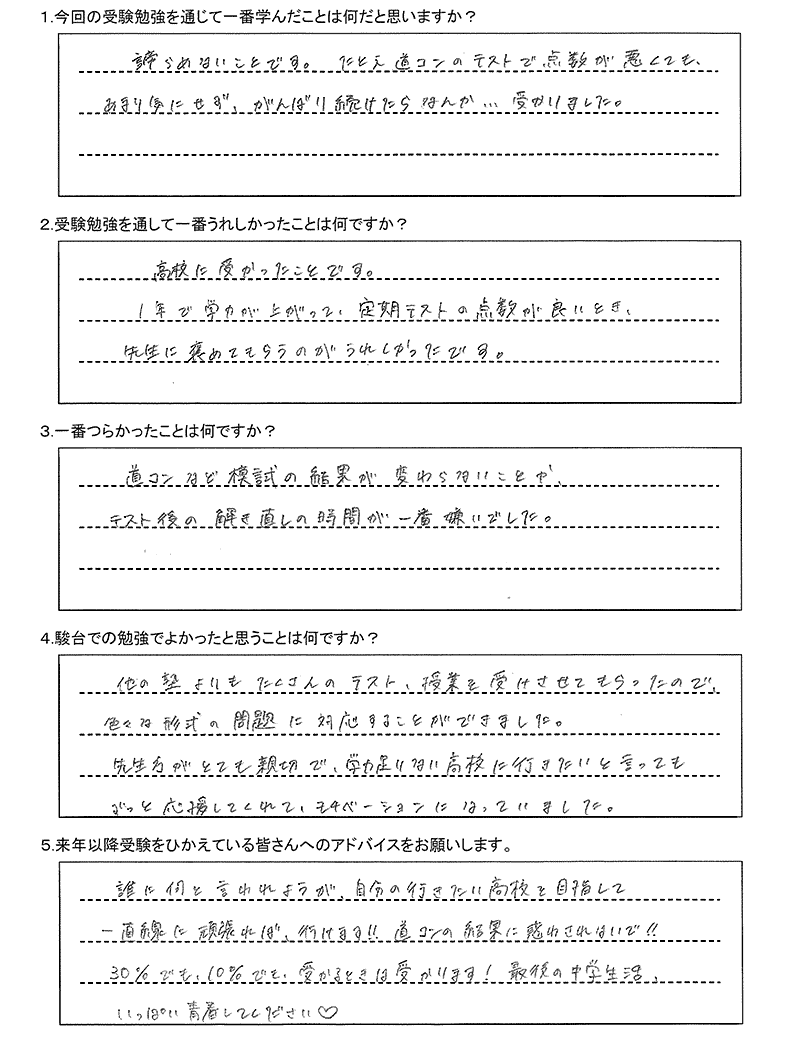 1.今回の受験勉強を通じて一番学んだことは何だと思いますか？
諦らめないことです。 たとえ道コンのテストで点数が悪くても、
あまり気にせず、がんばり続けたらなんか…受かりました。
2.受験勉強を通して一番うれしかったことは何ですか？
高校に受かったことです。
1年で学力が上がって、定期テストの点数が良いとき、
先生に褒めてもらうのがうれしかったです。
3.一番つらかったことは何ですか？
道コンなど模試の結果が変わらないことや、
テスト後の解き直しの時間が一番嫌いでした。
4.駿台での勉強でよかったと思うことは何ですか？
他の塾よりもたくさんのテスト、授業を受けさせてもらったので、
色々な形式の問題に対応することができました。
先生方がとても親切で、学力足りない高校に行きたいと言っても
ずっと応援してくれて、モチベーションになっていました。
5.来年以降受験をひかえている皆さんへのアドバイスをお願いします。
誰に何と言われようが、自分の行きたい高校を目指して
一直線に頑張れば、行けます!! 道コンの結果に惑わされないで!!
30%でも、10%でも、受かるときは受かります! 最後の中学生活、
いっぱい青春してください♡